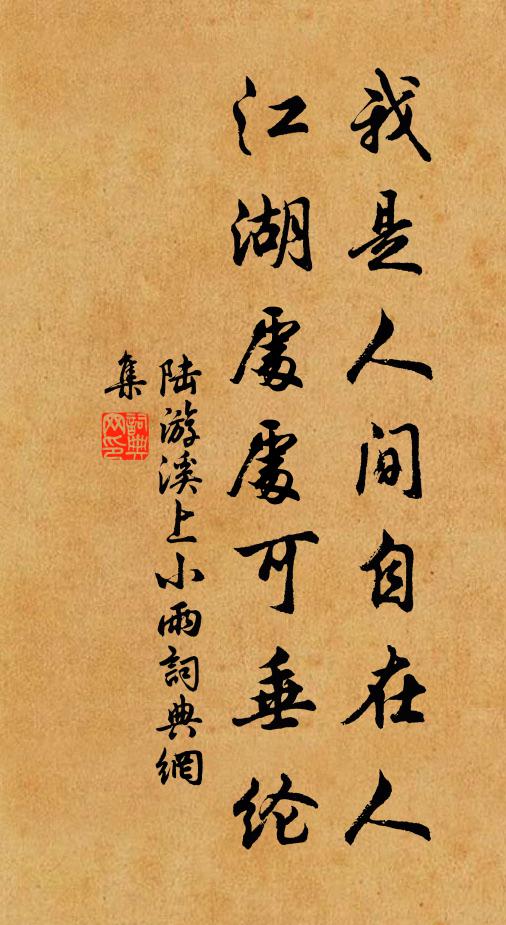 我是人间自在人
江湖處處可垂纶
陆游溪上小雨詞典網
集
詞典
网印